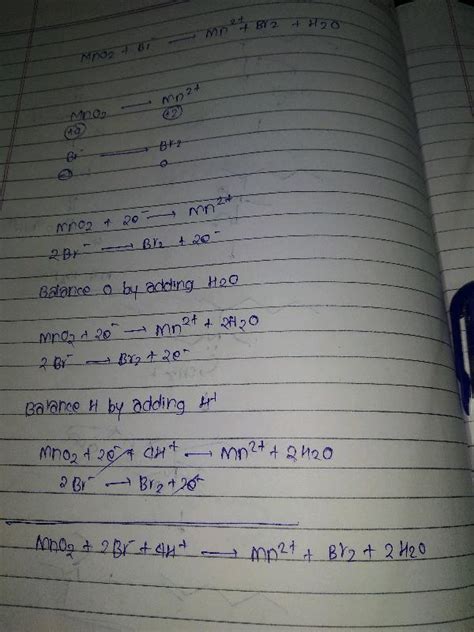 MnO2 + Br⁻ → Mn²⁺ + Br2 + H2O
MnO2 → Mn²⁺
+4 +2
Br⁻ → Br2
-1 0
MnO2 + 2e⁻ → Mn²⁺
2Br⁻ → Br2 + 2e⁻
Balance O by adding H2O
MnO2 + 2e⁻ → Mn²⁺ + 2H2O
2Br⁻ → Br2 + 2e⁻
Balance H by adding H⁺
MnO2 + 2e⁻ + 4H⁺ → Mn²⁺ + 2H2O
2Br⁻ → Br2 + 2e⁻
MnO2 + 2Br⁻ + 4H⁺ → Mn²⁺ + Br2 + 2H2O